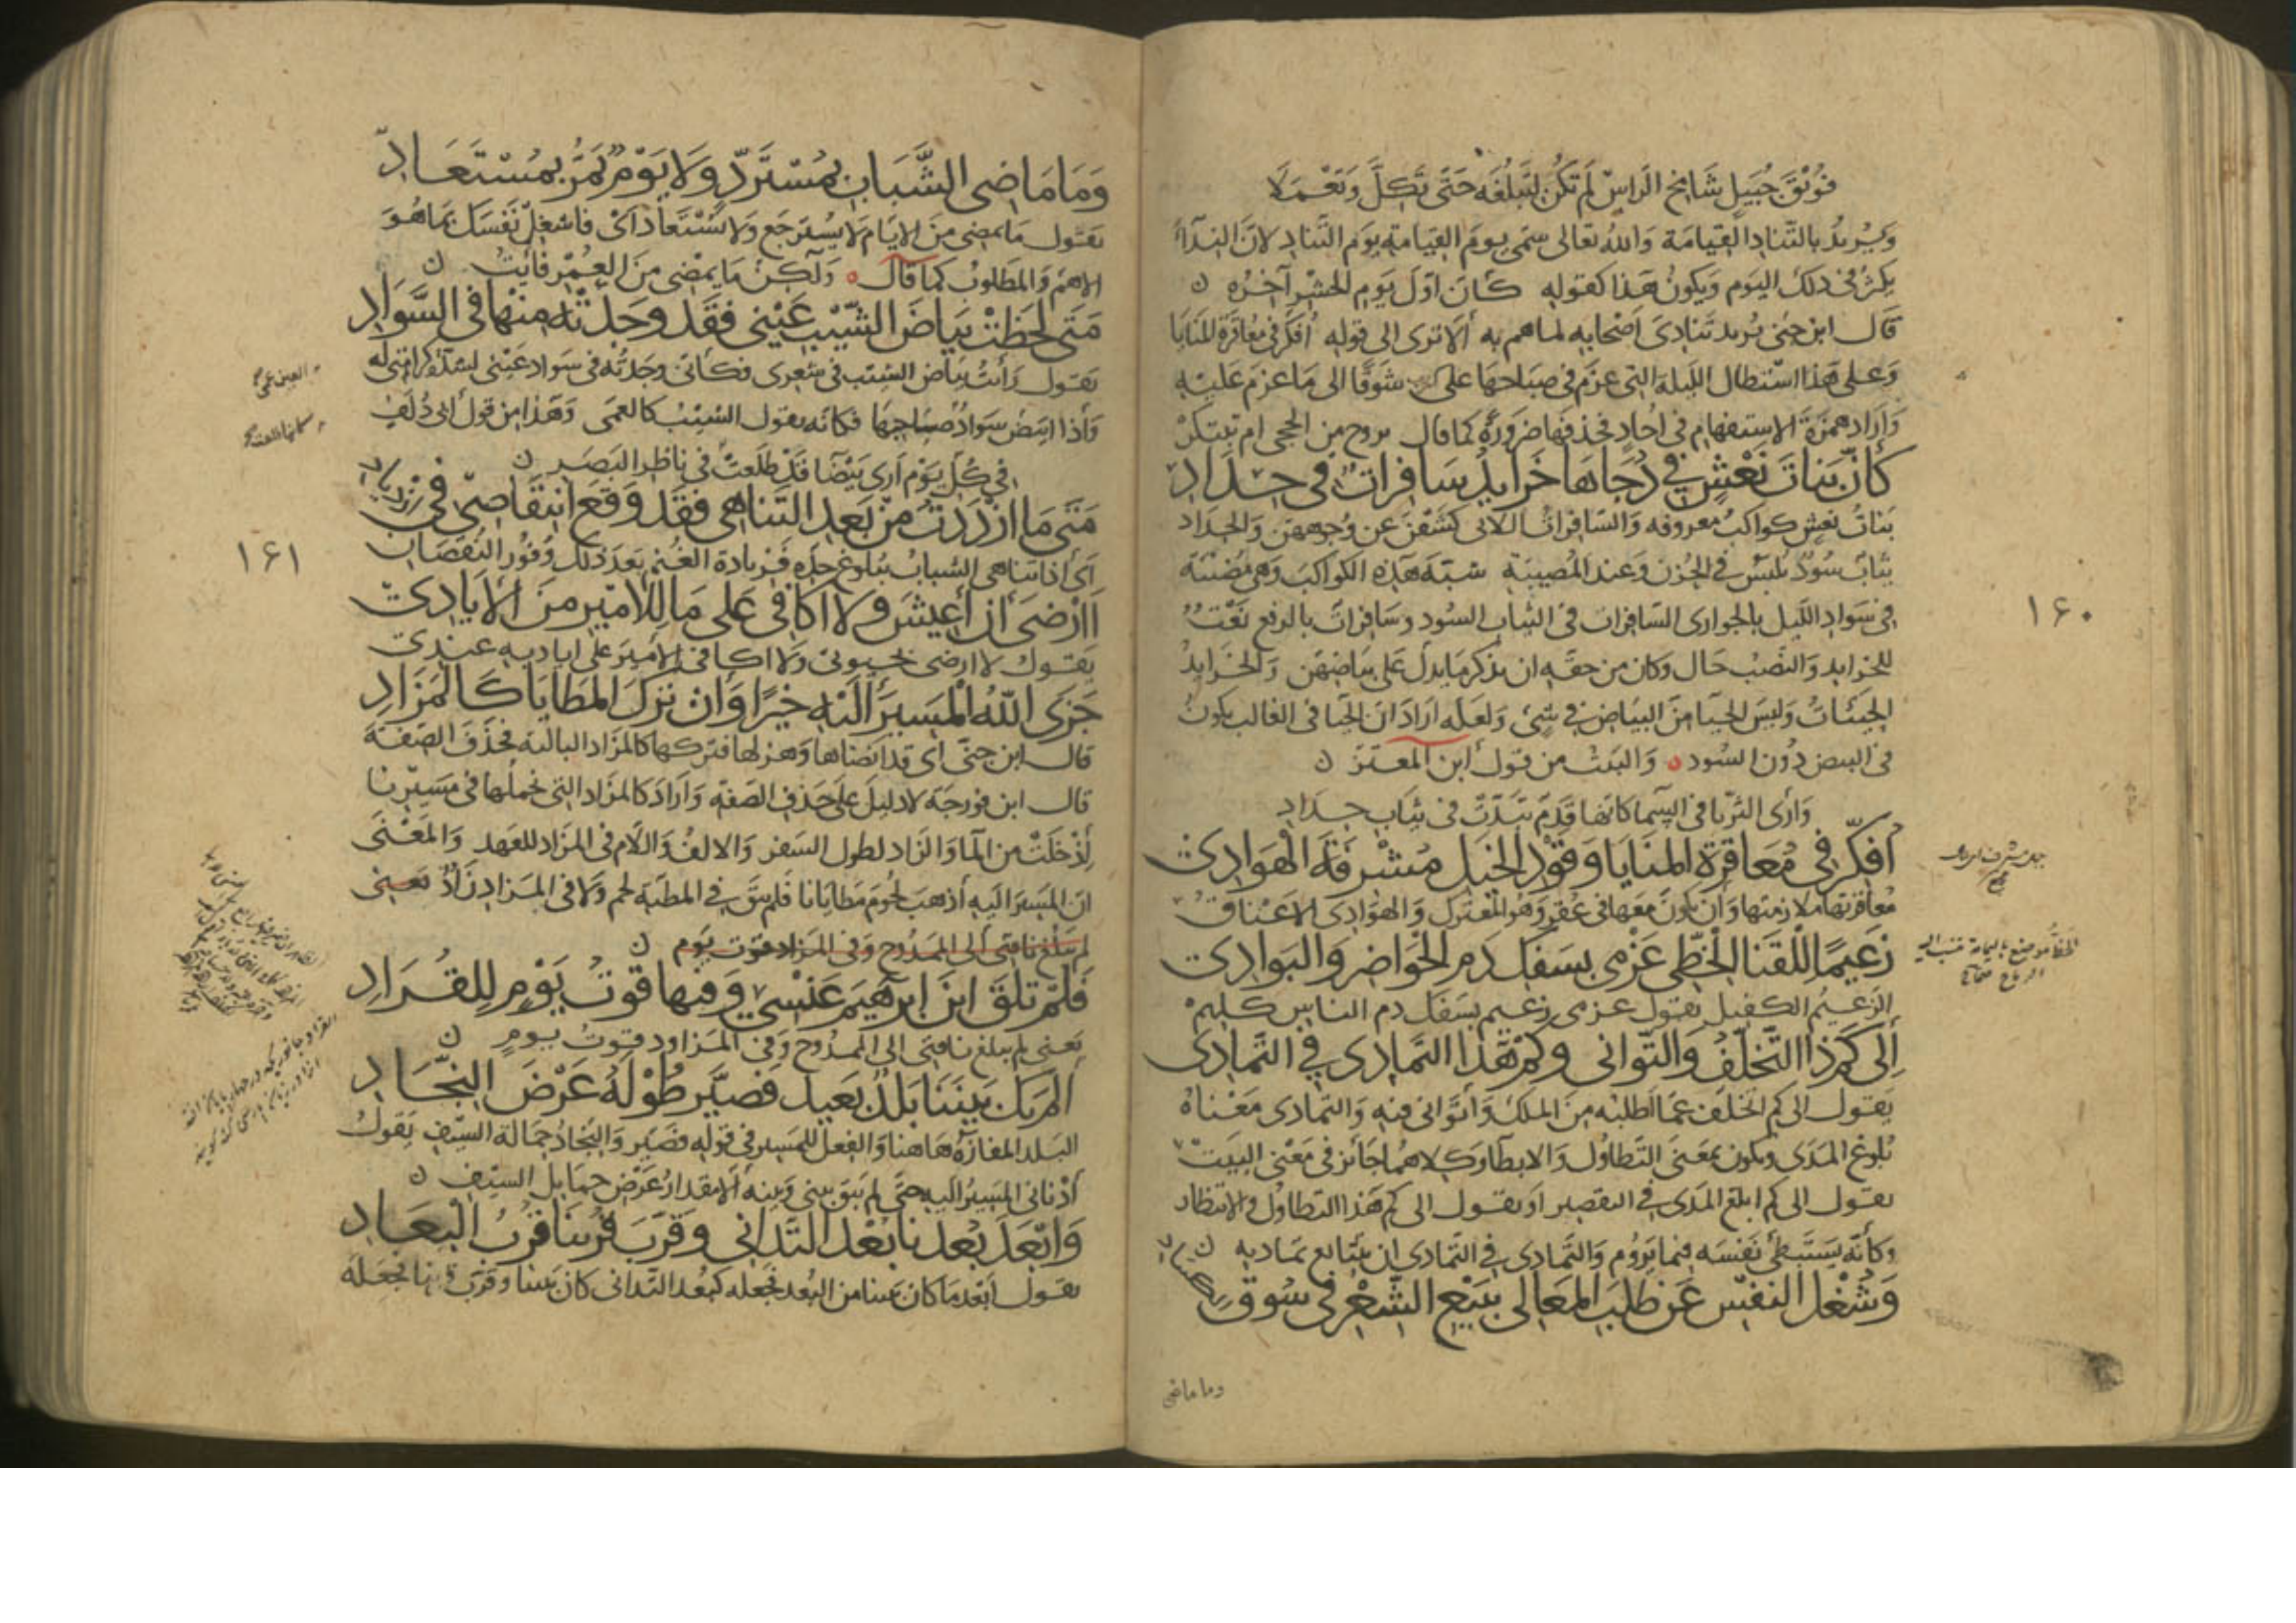 فُوَيْقَ جُبَيلٍ شَامِخِ الرَاسِ لَم تَكُن لتَبلُغَهُ حَتَّى تَكِلَّ وَتَعْمَلَا
وَيُريدُ بالتَّنادِ القِيَامَة وَاللهُ تعَالى سَمّى يومَ القِيَامةِ يَوم التَّنادِ لانّ النِدَآءَ
يكثُرُ في ذلكَ اليَوم وَيكونُ هَذا كقولهِ كَأنّ اوّلَ يَومِ الحَشْرِ آخِرُه ن
قَال ابن جنى يُريد تَنادِىَ اَصْحَابِه لما هم به ألا ترى الى قوله أفكر في معاقرة المنايَا
وَعلى هَذا اسْتطالَ اللّيلة التى عزَم في صَبَاحهَا على شَوقًا الى مَا عزم عَليْهِ
وَاَرَادَ همَزةَ الاستفهام في احُادٍ فحذفهَا ضرُورَةً كما قال تروح من الحى ام تبتكرْ
كَأنَّ بَنَاتِ نَعْشٍ فِي دُجَاهَا خَرَايدُ سَافِراتٌ فى حِدَادِ
بَناتُ نعشٍ كواكبُ معروفه وَالسَّافِراتُ اللاتى كشفْنَ عن وُجُوههن وَالحِدَاد
ثيَابٌ سُودٌ تُلبَسُ في الحُزن وَعندَ المُصِيبَة شبّهَ هَذهِ الكواكبَ وَهى مُضيئَة
فى سَوادِ اللّيل بالجوارى السَّافِرات فى الثيابِ السُود وسَافِراتٌ بالرفع نَعْتٌ
للخرايد وَالنصْبُ حَال وكان من حقّهِ ان يذكر مَا يدلّ على بيَاضِهنّ وَالخرايدُ
الحَيِيّاتُ وَليسَ الحيَا منَ البيَاضِ في شئ وَلعلّه اَرَادَ ان الحيَا فى الغالب يكونُ
فى البيض دُونَ السُود ٥ وَالبَيت من قول ابن المعتز ن
وَارَى الثريّا فى السّما كانّها قَدَمٌ تَبَدّتْ فى ثيَابِ حِدَادِ
أفكِّرُ في مُعَاقَرَةِ المنَايَا وَقَوْدِ الخَيلِ مُشْرِفَةَ الْهَوَادِى
مُعَاقَرَتها ملازمتها وَاَن يكونَ مَعَها في عُقْرٍ وَهُو المُعتَرك وَالهوَادِى الاعناق
زَعِيمًا لِلْقَنَا الخَطِّى عَزْمِى بسَفْكِ دَمِ الحَوَاضِرِ وَالبَوادِى
الزعيمُ الكفيل يقول عزمى زعيم بسَفك دم الناس كلهمْ
إلَى كَمْ ذَا التَّخَلُّفُ وَالتَّوَانى وَكمْ هَذَا التَّمادِى فى التَّمَادِى
يَقول الى كم اتخلّف عمّا اطلبُه منَ الملك وَاَتَوَانى فيه وَالتمَادى مَعْناهُ
بُلوغ المَدَى ويكون بمعنَى التَّطاوُل وَالابطَآ وَكلاهُما جَائز فى مَعْنى البيَتْ
يقول الى كم ابلغ المَدَى في التقصير اَو يقول الى كم هَذا التطاوُل والانتظار
وَكأنّه يَسْتبطئ نَفسَه فيما يَرُوم وَالتَّمادِى في التمَادى ان يتتابع تمَاديه ن
وَشُغْلُ النفْسِ عَن طَلَبِ المَعَالى ببَيْعِ الشِّعْرِ فى سُوقِ الكَسَادِ
وما ماضى
١٦٠
وَمَا مَاضِى الشَّبَابِ بِمُسْتَرَدٍّ وَلَا يَوْمٌ يَمُرُّ بِمُسْتَعَادِ
يقول مَا يمضى من الايّام لا يُسترجَع وَلا يُسْتَعَاد اى فاشغل نَفسَكَ بمَا هُوَ
الاهمّ وَالمَطلوبُ كما قال ٥ وَلَكنّ مَا يمْضى منَ العُمْر فَايتُ ن
مَتَى لَحَظَتْ بَيَاضَ الشَّيْبِ عَيْنى فقَد وَجَدَتْهُ مِنْها فى السَّوَادِ
يقول رَأتْ بيَاضَ الشيب في شعرى فكأنى وَجَدتُه فى سَواد عَينى
وَاذا ابيَضّ سَوادُ صَاحبهَا فكانه يقول الشيبُ كالعمَى وَهَذا من قول ابى دُلَفٍ
في كُلِّ يَوْمٍ اَرَى بَيْضَا قَدْ طَلَعتْ فى نَاظرِ البَصَرِ ن
مَتَى مَا ازْدَدْتُ مِنْ بَعدِ التَّنَاهِى فقَد وَقَعَ انتِقَاصِى فى ازْدِيَادِ
اى اذا تناهى الشبابُ ببُلوغ حدّه فزيادة العُمر بعدَ ذلك وُفور النُقصَان
١٦١
أَأَرْضَى أن أَعِيشَ وَلا أكَافِى عَلى مَا لِلأَمِيرِ مِنَ الأيَادِى
يَقول لا ارضى بحيوتى ولا اكافى الاَميرَ على اياديه عندى
جَزَى اللّٰهُ المَسِيرَ الَيْهِ خَيْرًا وَانْ تَرَكَ المَطَايَا كَالمَزَادِ
قال ابن جنّى اى قد انضاها وَهزلها فتركها كالمَزاد البالية فحذفَ الصّفة
قال ابن فورجه لا دليلَ على حذف الصفه وَاَرادَ كالمَزاد التى نحملها فى مَسيرنا
اِذ خلَتْ من المآ وَالزاد لطول السَفر وَالالفُ وَاللام فى المزاد للعهد وَالمَعْنَى
انّ المسيرَ اليه أذهبَ لحومَ مَطايَانا فلم يبقَ في المطيّة لحم وَلا فى المَزادِ زادٌ يعنى
لم تبلغ ناقتى الى الممدُوح وفى المزاد قوت يوم ن
فَلَمْ تَلْقَ ابنَ اِبرٰهِيمَ عَنْسِى وَفيهَا قُوتُ يَوْمٍ لِلْقُرَادِ
يعنى لم يبلغ ناقتى الى الممدُوح وَفى المَزاود قوتُ يومٍ ن
اَلَمْ يَكُ بَينَنَا بَلدٌ بَعِيدٌ فَصَيَّرَ طُوْلَهُ عَرْضَ النِّجَادِ
البَلد المفازَةُ هَاهنا وَالفِعل للمَسِير فى قولهِ فصَيّر وَالنجادُ حمَالة السيْف يقول
اَدْنانى المَسِيرُ اليه حتّى لم يَبق بينى وَبينه اِلا مقدارُ عَرْضِ حمَايل السيف ن
وَابْعَدَ بُعْدَنَا بُعْدَ التَّدَانى وَقَرَّبَ قُربَنَا قُربَ الْبِعَادِ
يقول اَبعَد مَا كان بيننا من البُعد فجعله كبُعد التدانى كان بيننا وقرّب فجعلهُ